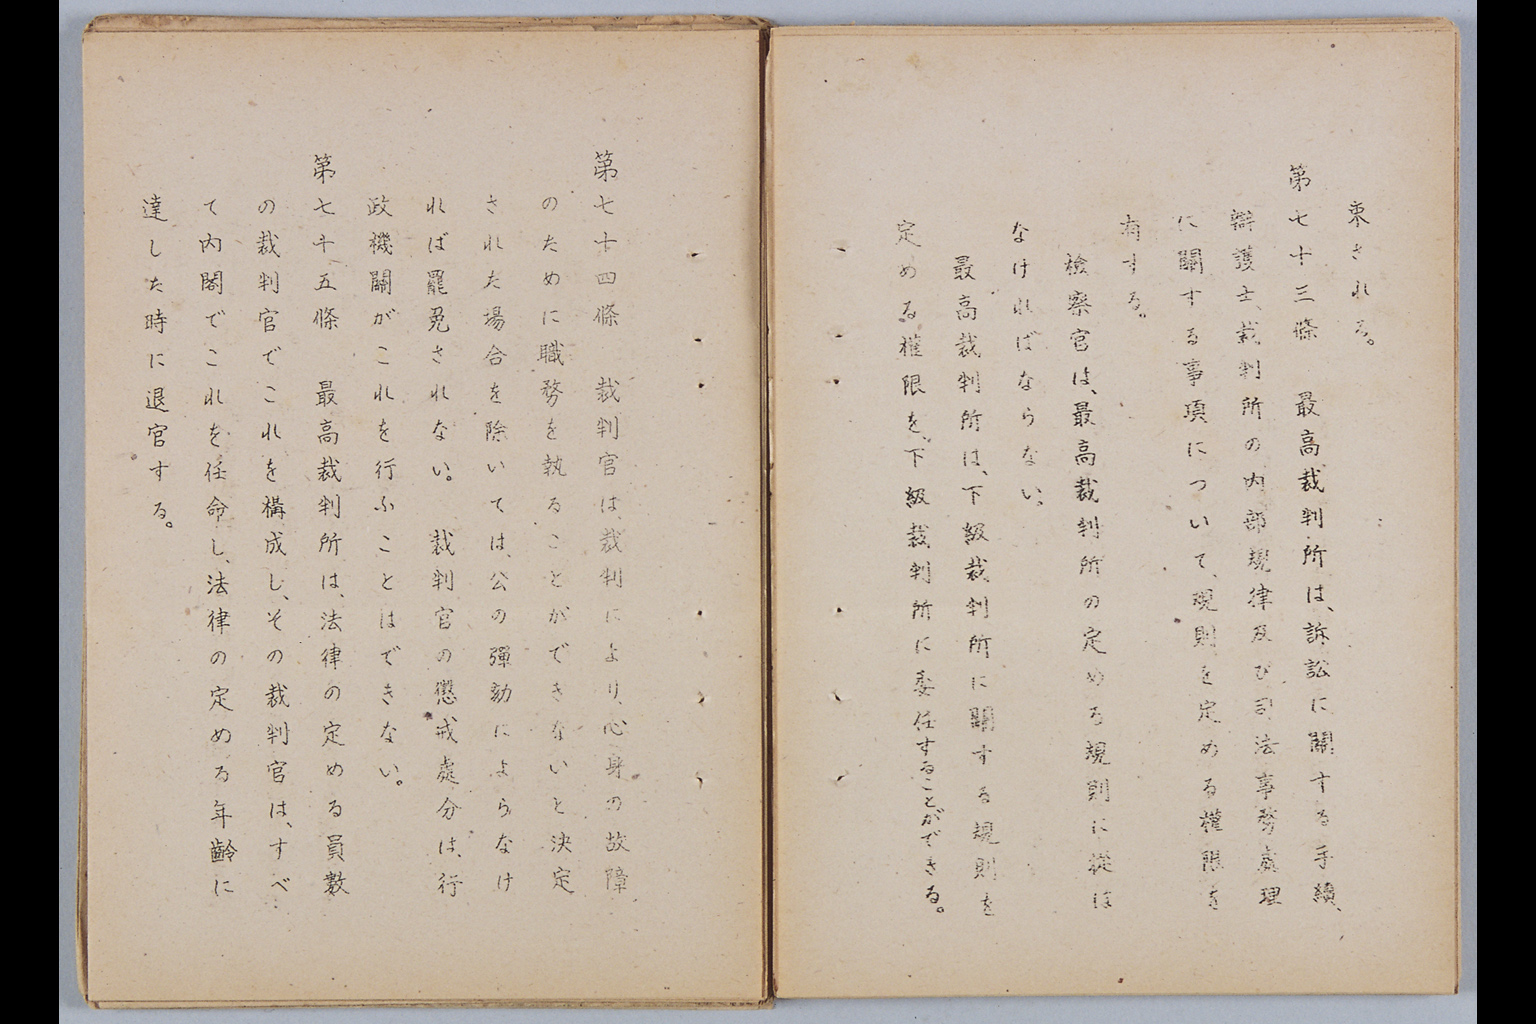 束される。
第七十三條　最高裁判所は、訴訟に關する手續、
辯護士、裁判所の内部規律及び司法事務處理
に關する事項について、規則を定める權限を
有する。
檢察官は、最高裁判所の定める規則に從は
なければならない。
最高裁判所は、下級裁判所に關する規則を
定める權限を、下級裁判所に委任することができる。
第七十四條　裁判官は、裁判により、心身の故障
のために職務を執ることができないと決定
された場合を除いては、公の彈劾によらなけ
れば罷免されない。裁判官の懲戒處分は、行
政機關がこれを行ふことはできない。
第七十五條　最高裁判所は、法律の定める員數
の裁判官でこれを構成し、その裁判官は、すべ
て内閣でこれを任命し、法律の定める年齢に
達した時に退官する。